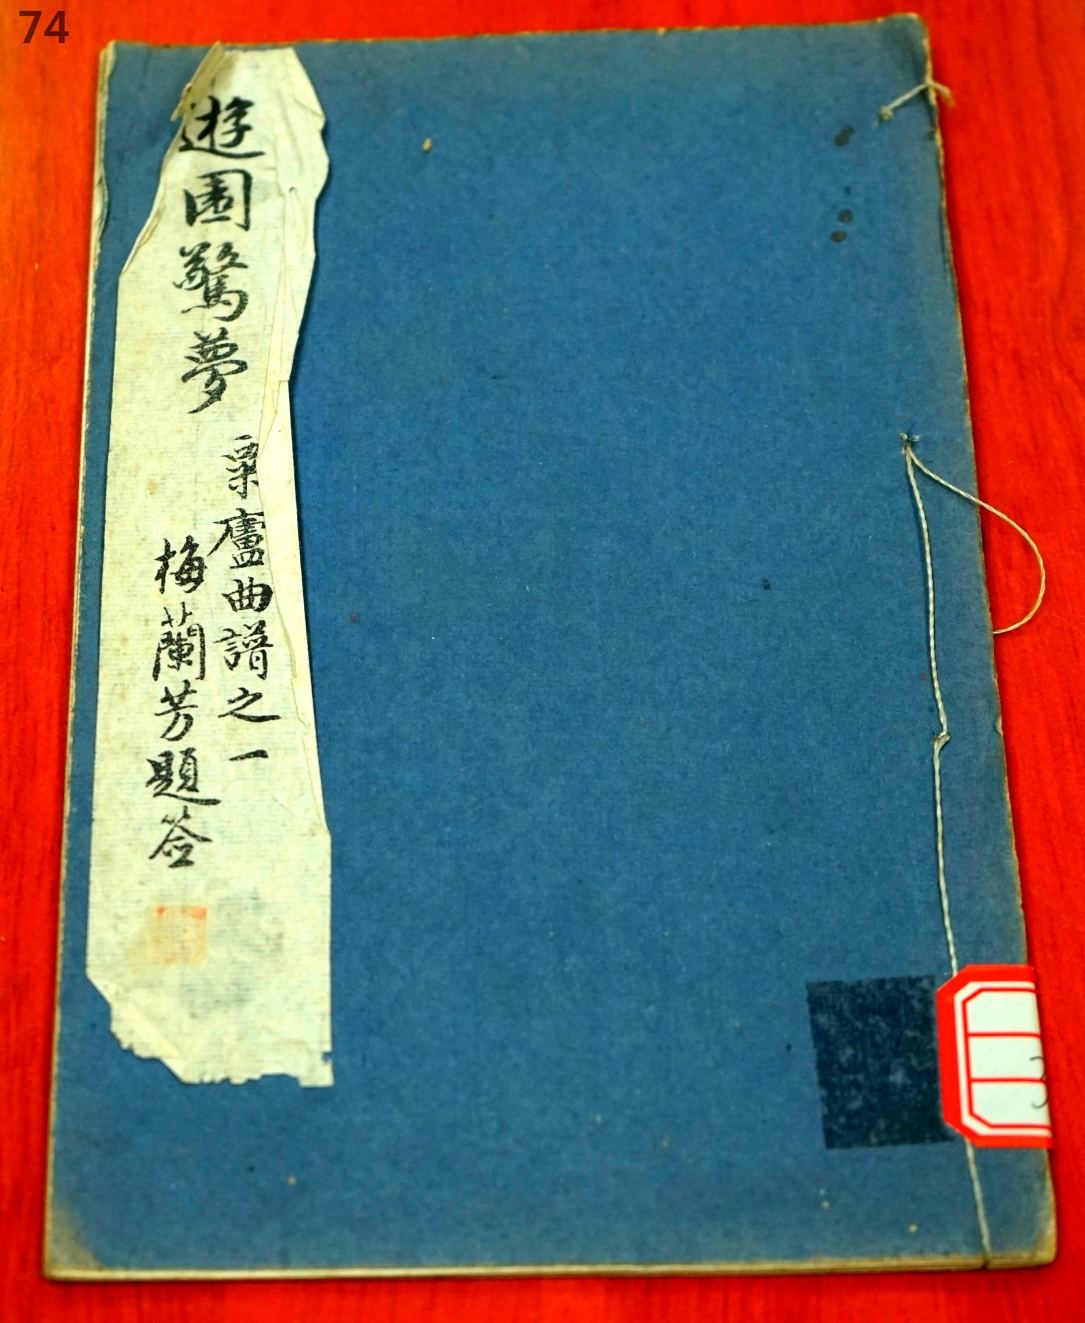 74
遊園驚夢
粟廬曲譜之一
梅蘭芳題签
3